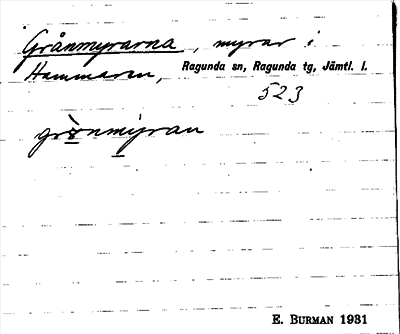 Grånmyrarna, myrar i
Hammaren, Ragunda sn, Ragunda tg, Jämtl. l.
523
grònmyran
E. BURMAN 1931